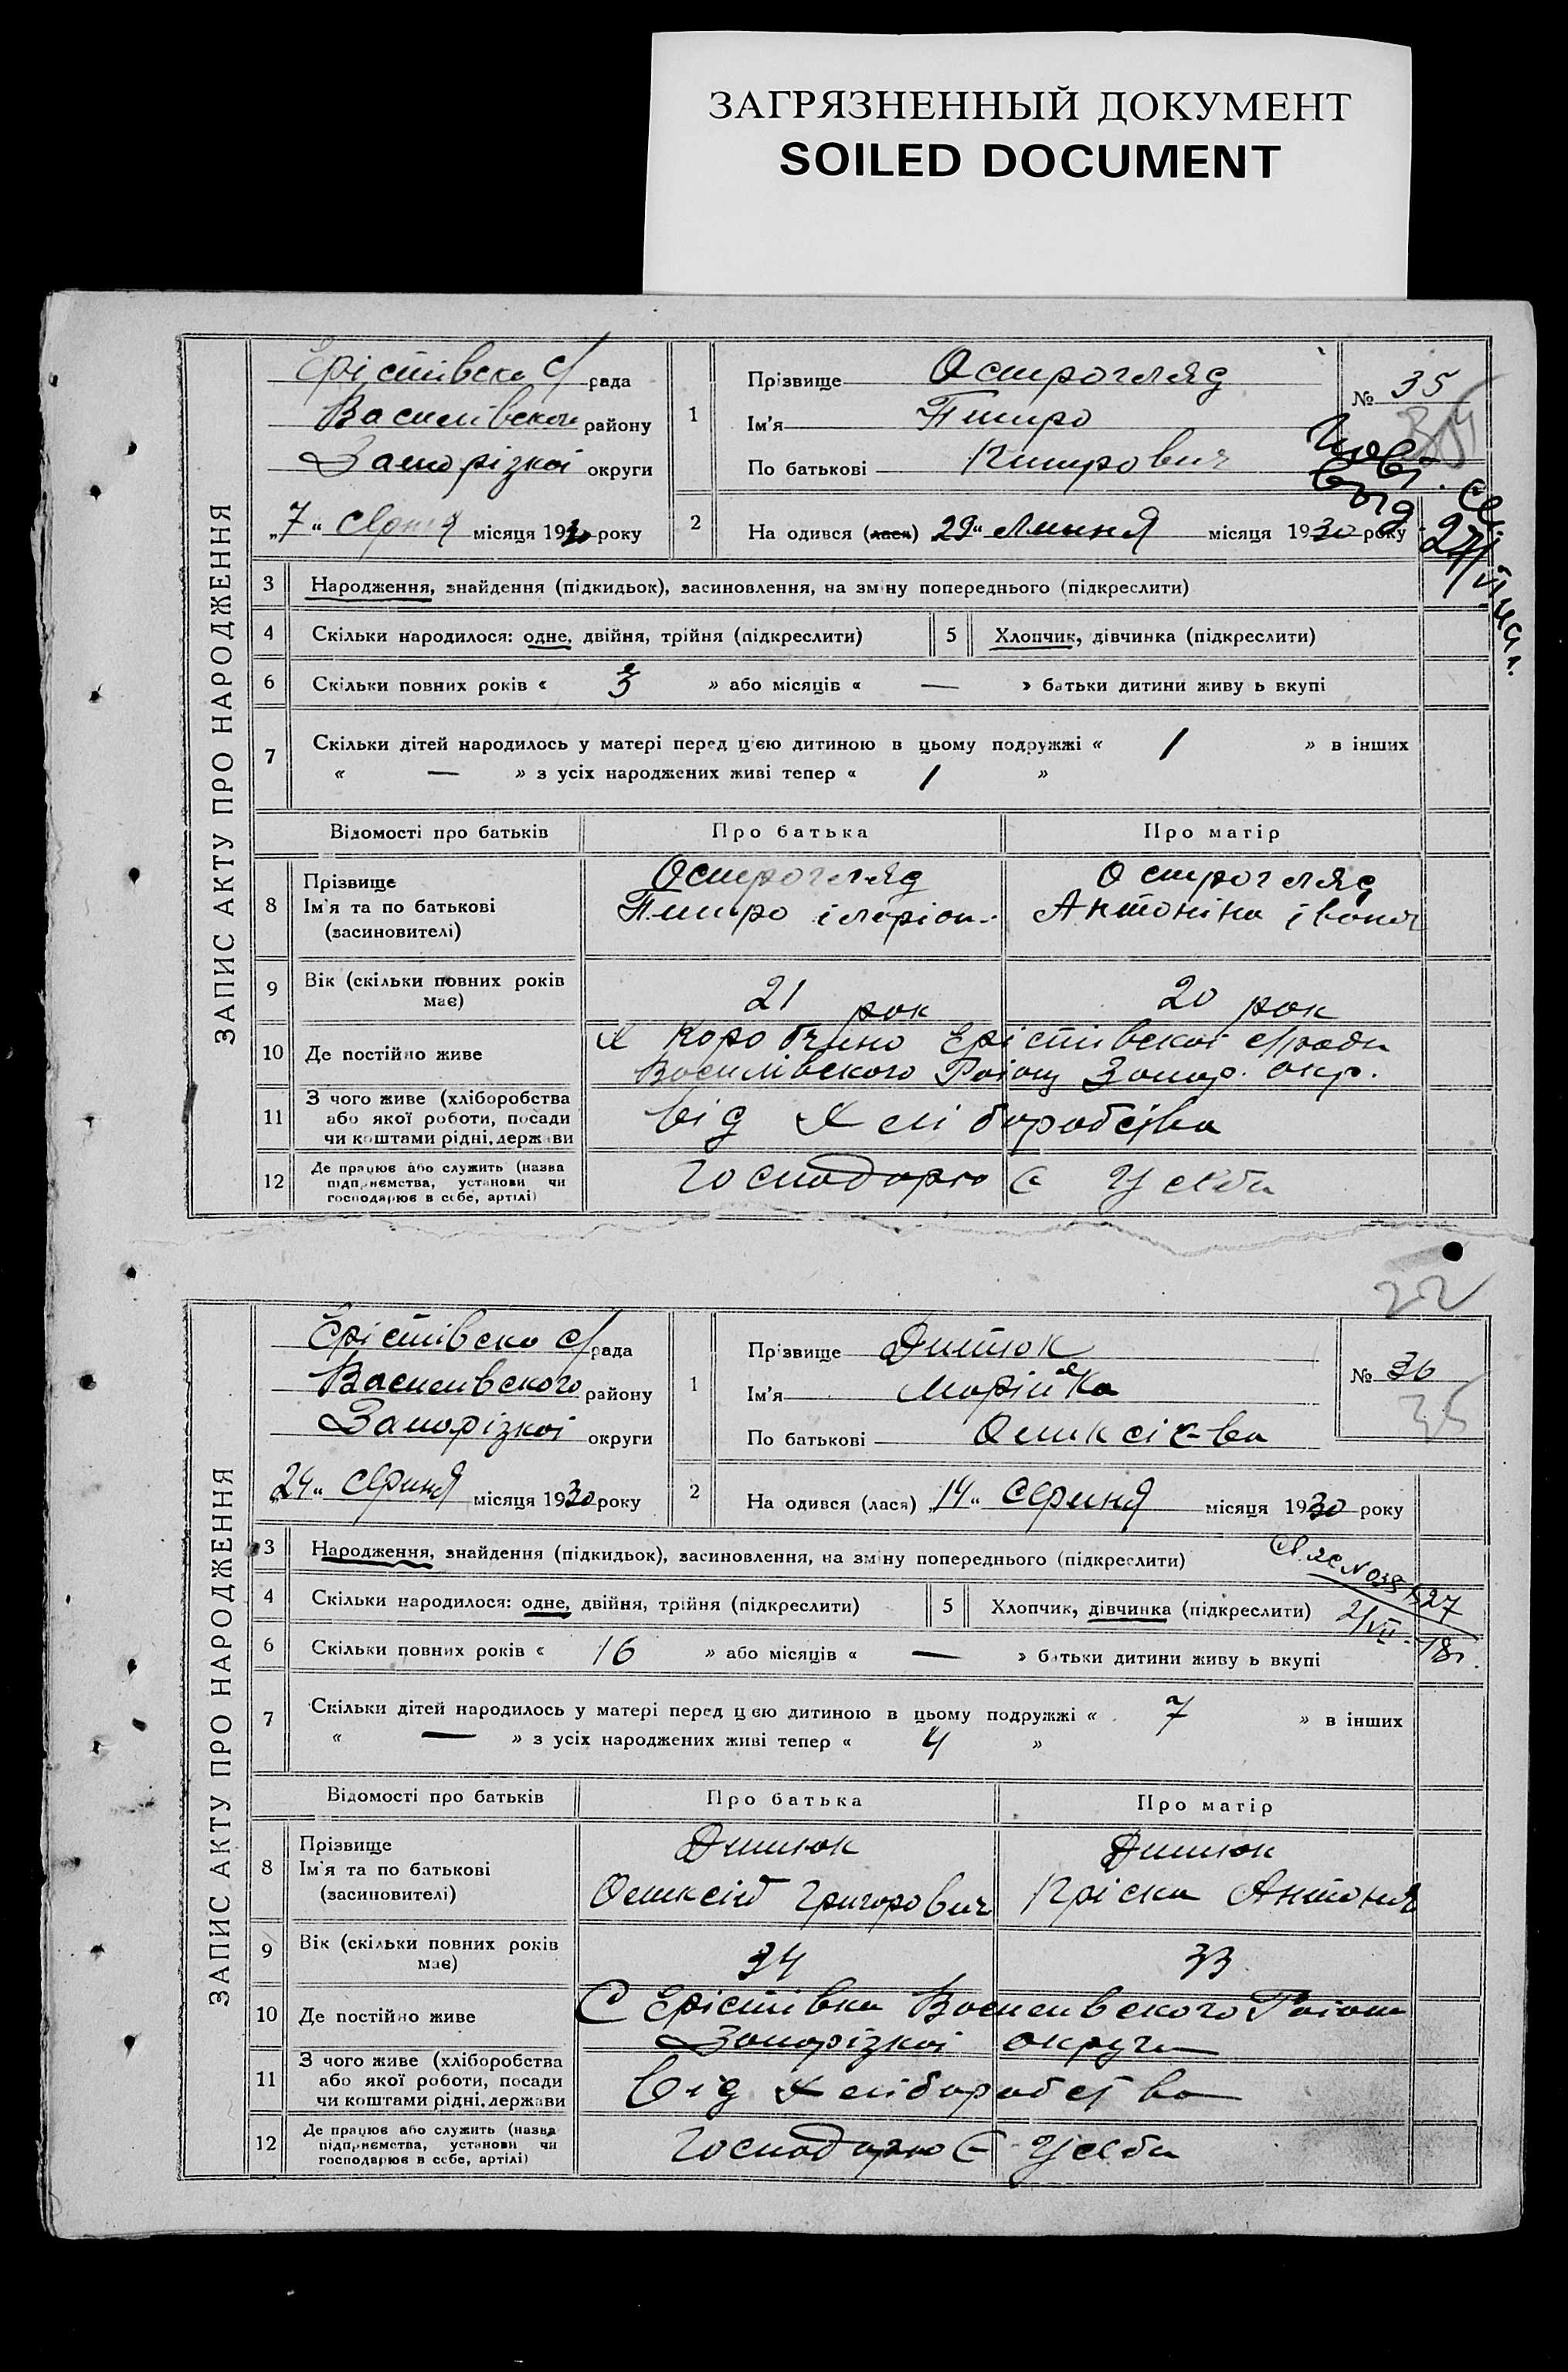 ЗАГРЯЗНЕННЫЙ ДОКУМЕНТ
SOILED DOCUMENT
ЗАПИС АКТУ ПРО НАРОДЖЕННЯ
Єрістівська с/рада
Василівского району
Запорізкої округи
„7“ серпня місяця 1930 року
1
Прізвище Острогляд
Ім'я Питро
По батькові Питрович
№ 35
2
На одився (лася) „29“ Липня місяця 1930 року
3 Народження, знайдення (підкидьок), засиновлення, на зміну попереднього (підкреслити)
4 Скільки народилося: одне, двійня, трійня (підкреслити) 5 Хлопчик, дівчинка (підкреслити)
6 Скільки повних років « 3 » або місяців « — » батьки дитини живу ь вкупі
7 Скільки дітей народилось у матері перед цією дитиною в цьому подружжі « 1 » в інших
« — » з усіх народжених живі тепер « 1 »
Відомості про батьків Про батька Про матір
8 Прізвище
Ім'я та по батькові
(засиновителі)
Острогляд
Питро іларіон.
Остроглад
Антоніна іванов
9 Вік (скільки повних років
має)
21 рок 20 рок
10 Де постійно живе
Х Коробчино Єрістівскої с/ради
Василівского Раіону Запор. окр.
11 З чого живе (хліборобства
або якої роботи, посади
чи коштами рідні, держави
від Хліборобства
12 Де працює або служить (назва
підприємства, установи чи
господарює в себе, артілі)
Господарює У себи
22
ЗАПИС АКТУ ПРО НАРОДЖЕННЯ
Єрістівска с/рада
Василивского району
Запорізкої округи
„24“ серпня місяця 1930 року
1
Прізвище Дитюк
Ім'я Марійка
По батькові Оликсієва
№ 36
35
2
На одився (лася) „14“ серпня місяця 1930 року
3 Народження, знайдення (підкидьок), засиновлення, на зміну попереднього (підкреслити)
4 Скільки народилося: одне, двійня, трійня (підкреслити) 5 Хлопчик, дівчинка (підкреслити)
6 Скільки повних років « 16 » або місяців « — » батьки дитини живу ь вкупі
7 Скільки дітей народилось у матері перед цією дитиною в цьому подружжі « 7 » в інших
« — » з усіх народжених живі тепер « 4 »
Відомості про батьків Про батька Про матір
8 Прізвище
Ім'я та по батькові
(засиновителі)
Дитюк
Оликсій Григорович
Дитюк
Кріска Антонів
9 Вік (скільки повних років
має)
34 33
10 Де постійно живе
С Єрістівка Василивского Раіону
Запорізкої округи
11 З чого живе (хліборобства
або якої роботи, посади
чи коштами рідні, держави
від Хліборобства
12 Де працює або служить (назва
підприємства, установи чи
господарює в себе, артілі)
Господарює У себи